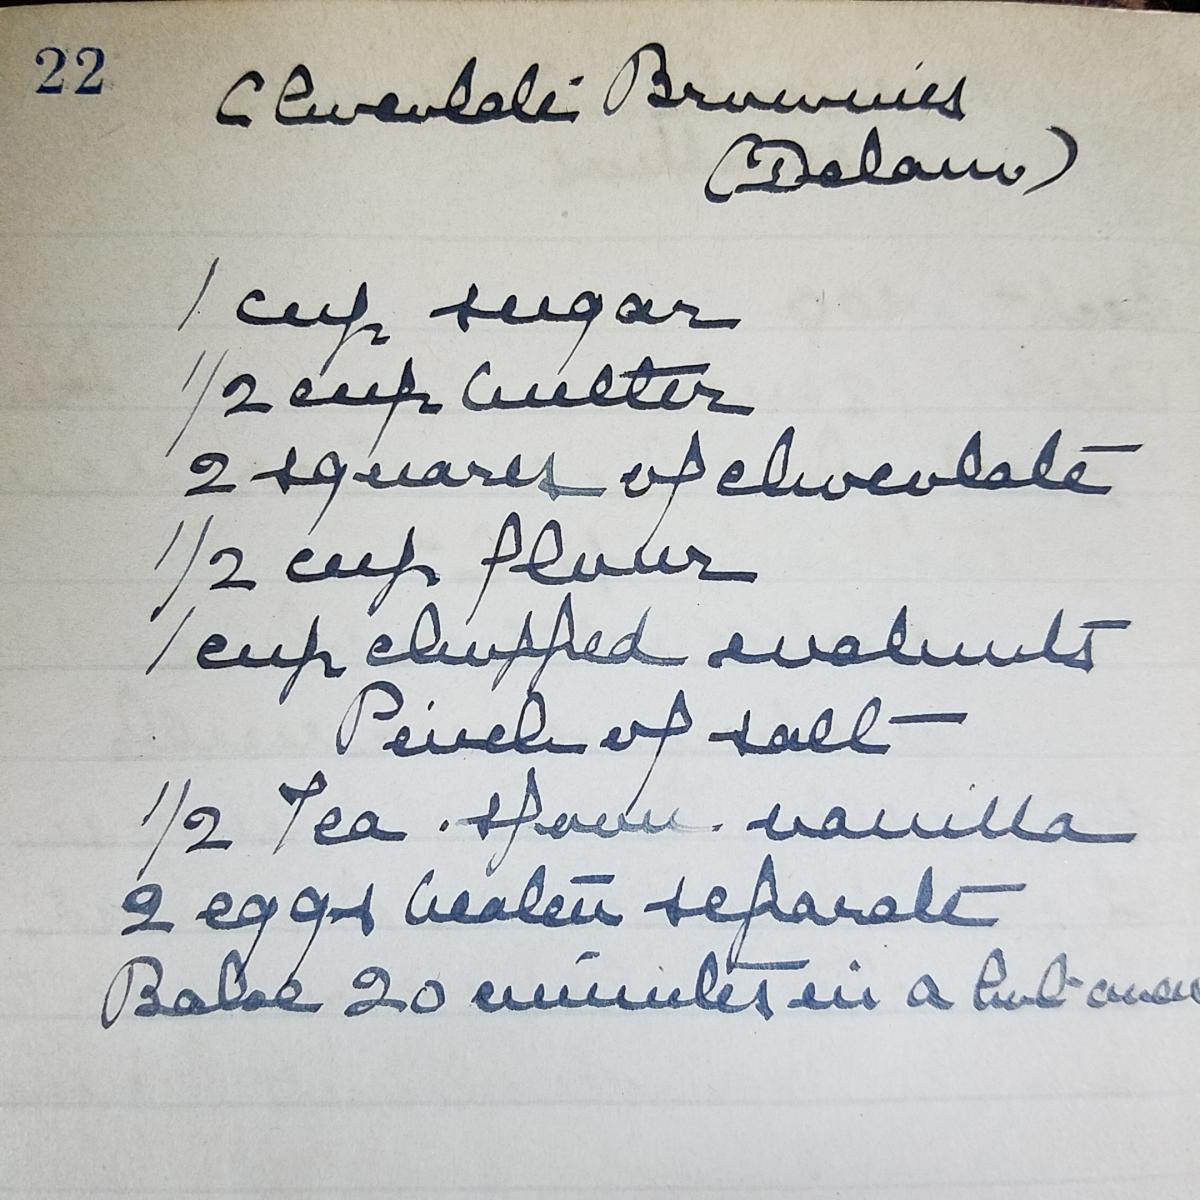 22
Chocolate Brownies
(Delano)
1 cup sugar
1/2 cup butter
2 squares of chocolate
1/2 cup flour
1 cup chopped walnuts
Pinch of salt
1/2 Tea . spoon . vanilla
2 eggs beaten separate
Bake 20 minutes in a hot oven